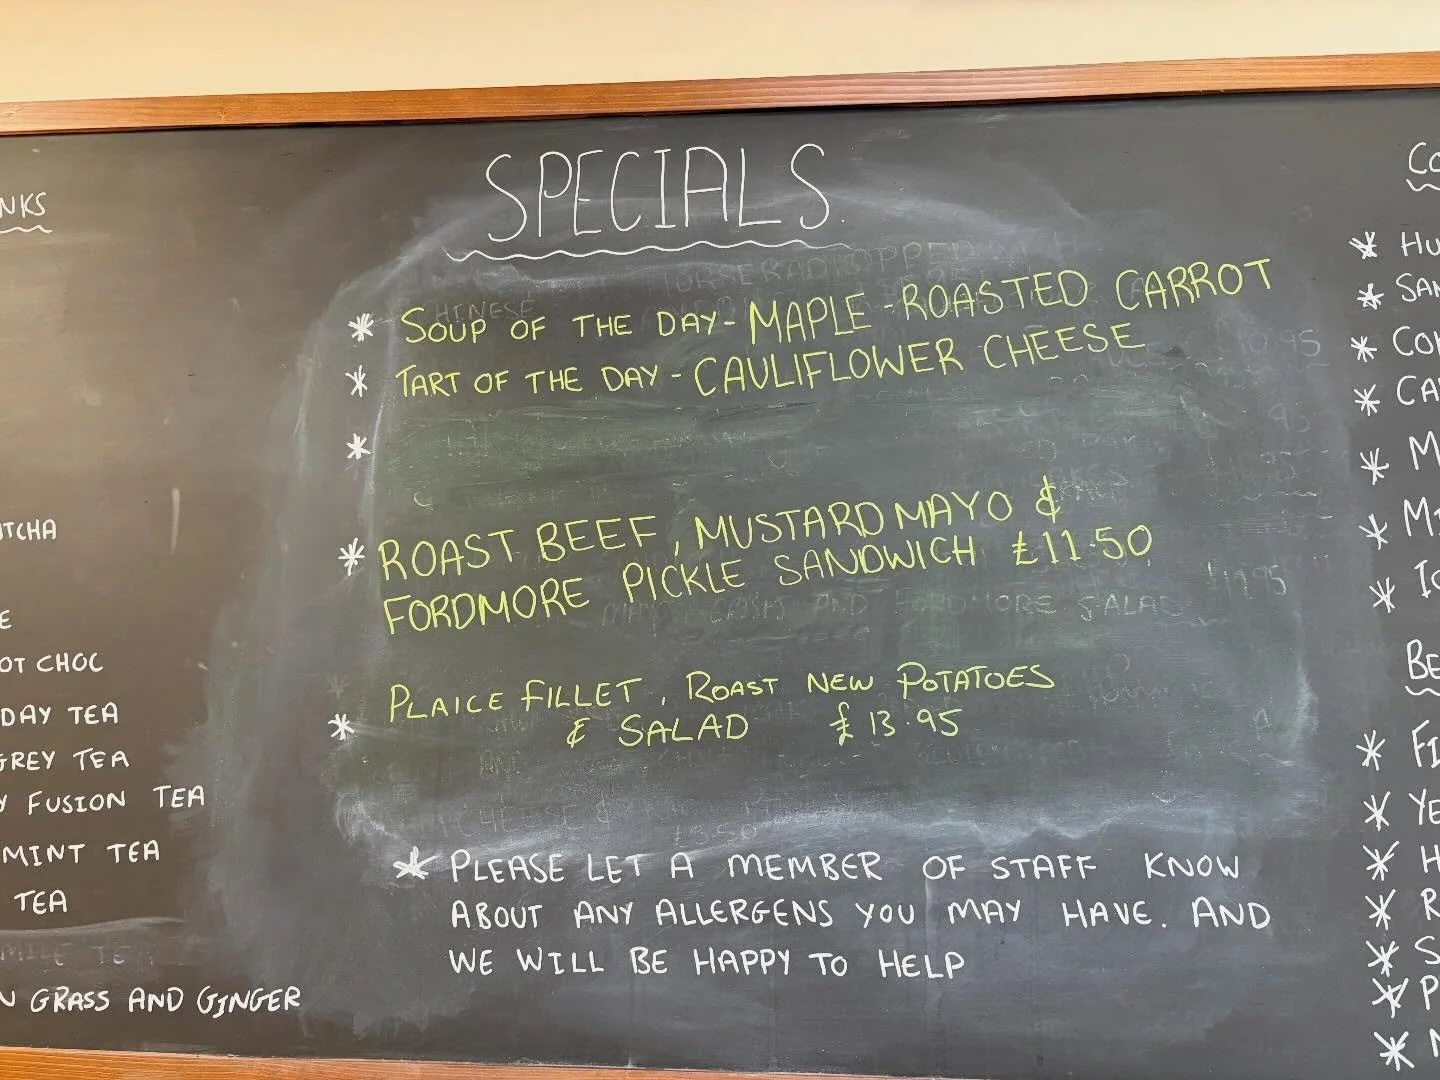 SPECIALS.
* SOUP OF THE DAY - MAPLE - ROASTED CARROT
* TART OF THE DAY - CAULIFLOWER CHEESE
*
* ROAST BEEF, MUSTARD MAYO &
FORDMORE PICKLE SANDWICH £11.50
PLAICE FILLET, ROAST NEW POTATOES
* & SALAD £13.95
* PLEASE LET A MEMBER OF STAFF KNOW
ABOUT ANY ALLERGENS YOU MAY HAVE. AND
WE WILL BE HAPPY TO HELP
NKS
TCHA
E
OT CHOC
DAY TEA
GREY TEA
Y FUSION TEA
MINT TEA
TEA
N GRASS AND GINGER
CO
* HU
* SAN
* CO
* CA
* M
* M
* IC
BE
* FI
* YE
* H
* R
* S
* P
*